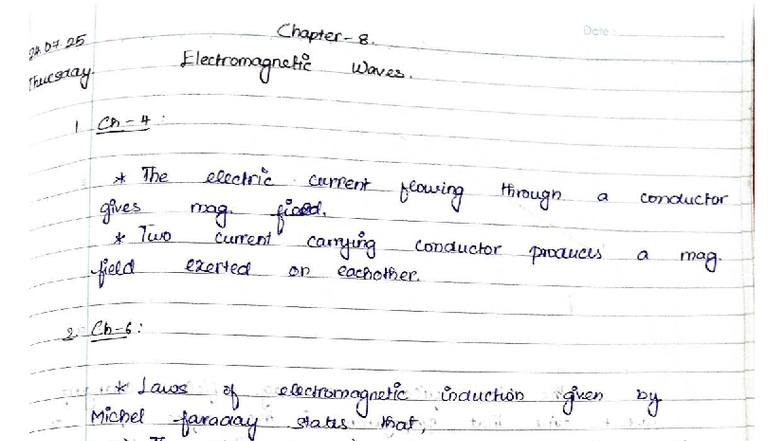 Chapter - 8.
Date :
24.07.25
Thursday
Electromagnetic Waves.
1 Ch - 4 :
* The electric current flowing through a conductor
gives mag. field.
* Two current carrying conductor produces a mag.
field exerted on eachother.
2. Ch-6 :
* Laws of electromagnetic induction given by
Michel faraday states that,